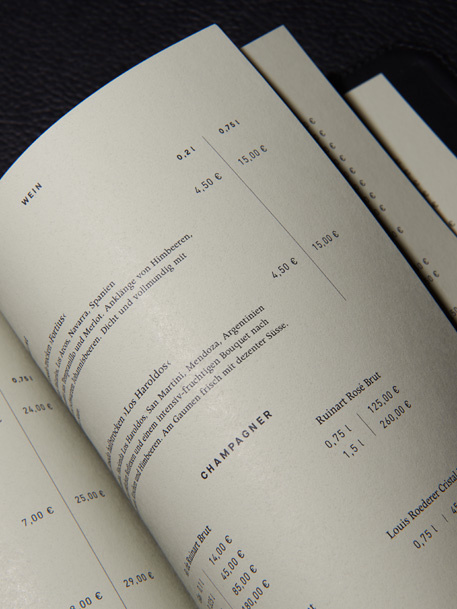 WEIN
0,2 l 0,75 l
4,50 € 15,00 €
›Fortius‹
Los Arcos, Navarra, Spanien
Tempranillo und Merlot. Anklänge von Himbeeren,
Johannisbeeren. Dicht und vollmundig mit
4,50 € 15,00 €
›Los Haroldos‹
Los Haroldos, San Martini, Mendoza, Argentinien
und einem intensiv-fruchtigen Bouquet nach
und Himbeeren. Am Gaumen frisch mit dezenter Süsse.
CHAMPAGNER
Ruinart Rosé Brut
0,75 l 125,00 €
1,5 l 260,00 €
Louis Roederer Cristal
0,75 l
de Ruinart Brut
14,00 €
45,00 €
85,00 €
180,00 €
0,75 l
24,00 €
25,00 €
7,00 €
29,00 €
8,00 €